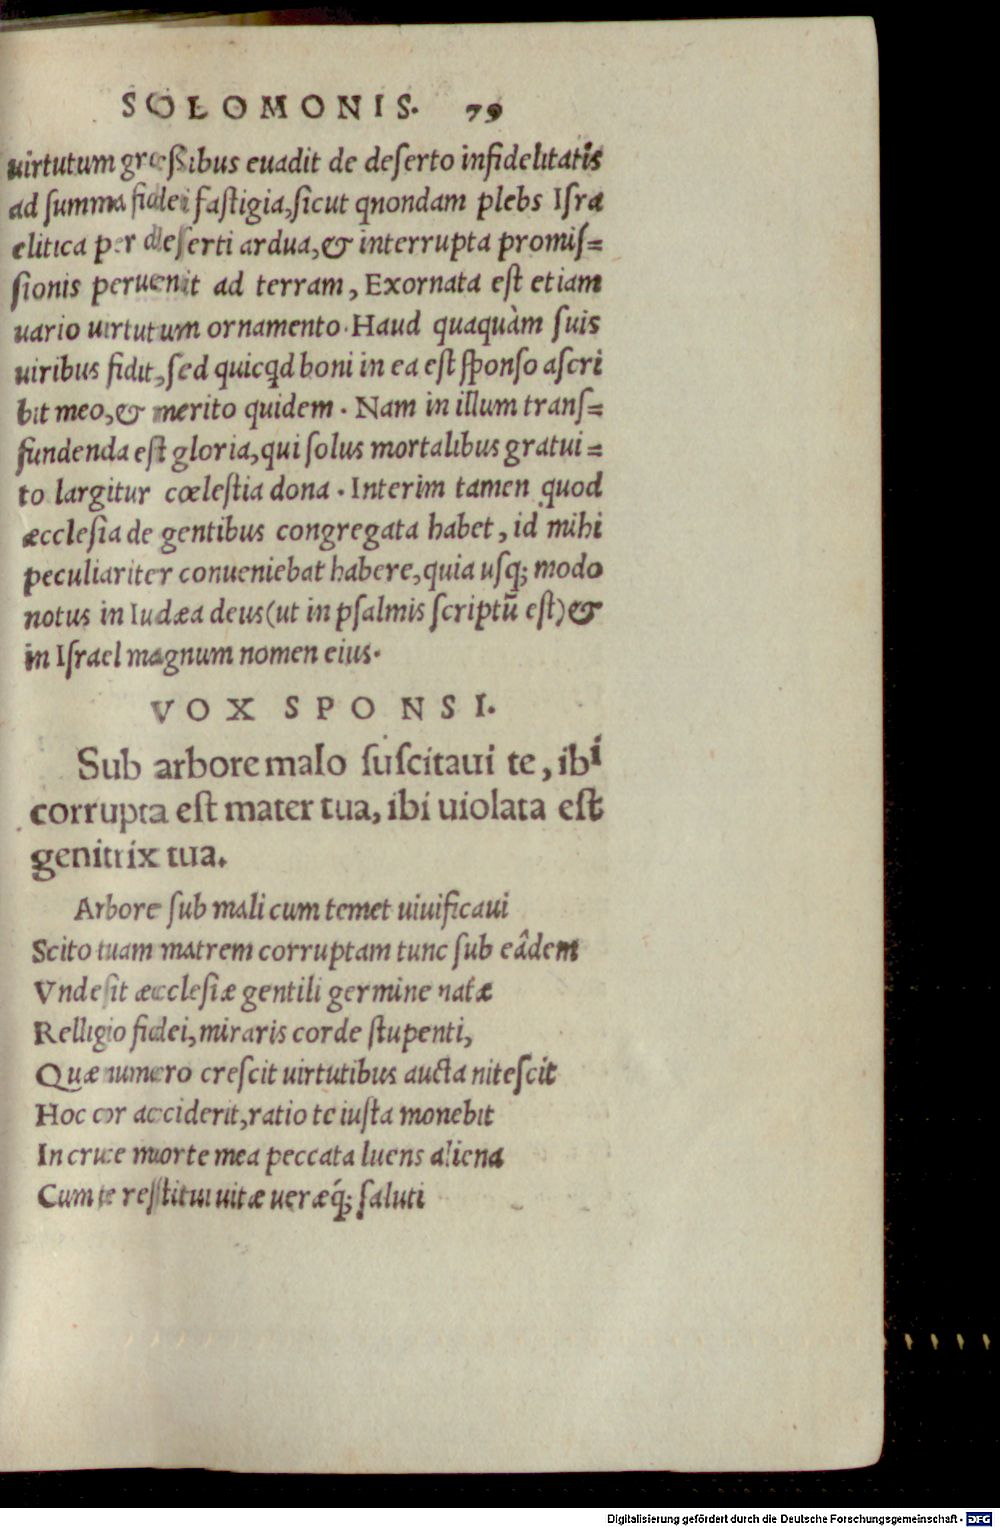 SOLOMONIS. 79
uirtutum græſſibus euadit de deſerto infidelitatis
ad ſumma fidei faſtigia,ſicut qnondam plebs Iſra
elitica per deſerti ardua,& interrupta promiſ=
ſionis peruenit ad terram, Exornata eſt etiam
uario uirtutum ornamento. Haud quaquàm ſuis
uiribus fidit, ſed quicqd boni in ea eſt ſponſo aſcri
bit meo,& merito quidem. Nam in illum tranſ=
fundenda eſt gloria,qui ſolus mortalibus gratui=
to largitur cœleſtia dona. Interim tamen quod
æccleſia de gentibus congregata habet, id mihi
peculiariter conueniebat habere,quia uſq; modo
notus in Iudæa deus(ut in pſalmis ſcriptū eſt)&
in Iſrael magnum nomen eius.
VOX SPONSI.
Sub arbore malo ſuſcitaui te, ibi
corrupta eſt mater tua, ibi uiolata eſt
genitrix tua.
Arbore ſub mali cum temet uiuificaui
Scito tuam matrem corruptam tunc ſub eâdem
Vnde ſit æccleſiæ gentili germine natæ
Relligio fidei,miraris corde ſtupenti,
Quæ numero creſcit uirtutibus aucta niteſcit
Hoc cor acciderit,ratio te iuſta monebit
In cruce morte mea peccata luens aliena
Cum te reſtitui uitæ ueræq́; ſaluti
Digitalisierung gefördert durch die Deutsche Forschungsgemeinschaft - DFG